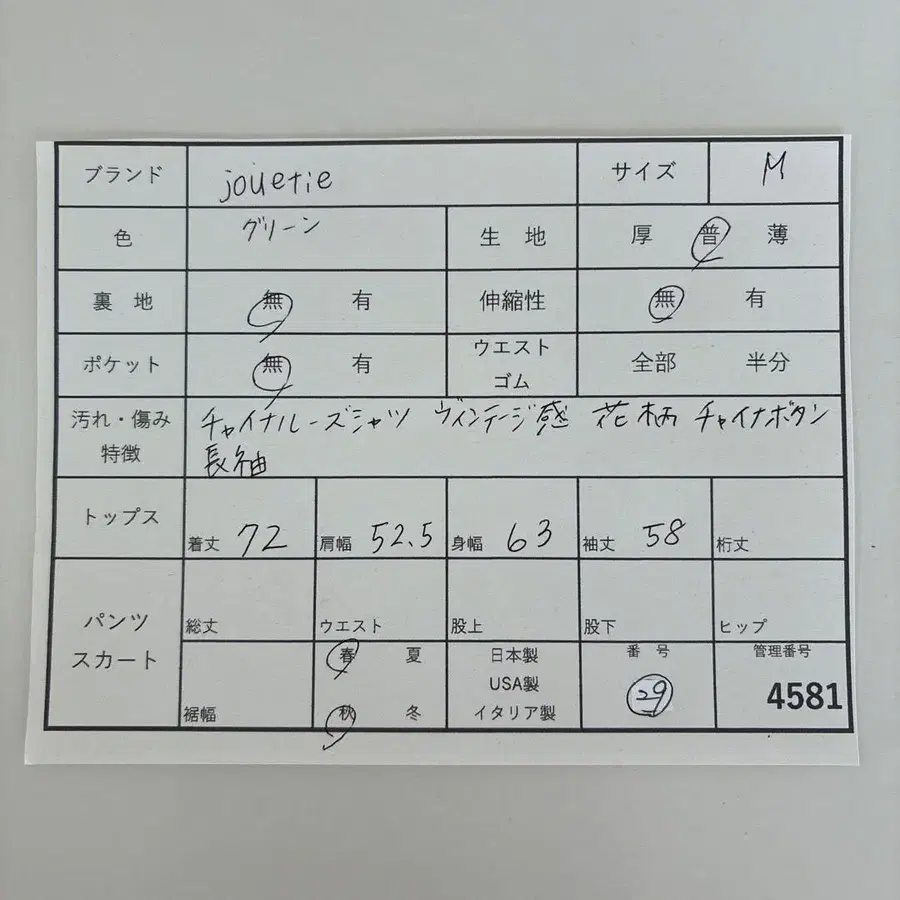 ブランド jouetie サイズ M
色 グリーン 生地 厚 普 薄
裏地 無 有 伸縮性 無 有
ポケット 無 有 ウエスト
ゴム 全部 半分
汚れ・傷み
特徴 チャイナルーズシャツ ヴィンテージ感 花柄 チャイナボタン
長袖
トップス 着丈 72 肩幅 52.5 身幅 63 袖丈 58 裄丈
パンツ
スカート 総丈 ウエスト 股上 股下 ヒップ
裾幅 春 夏
秋 冬
日本製
USA製
イタリア製
番号
29
管理番号
4581